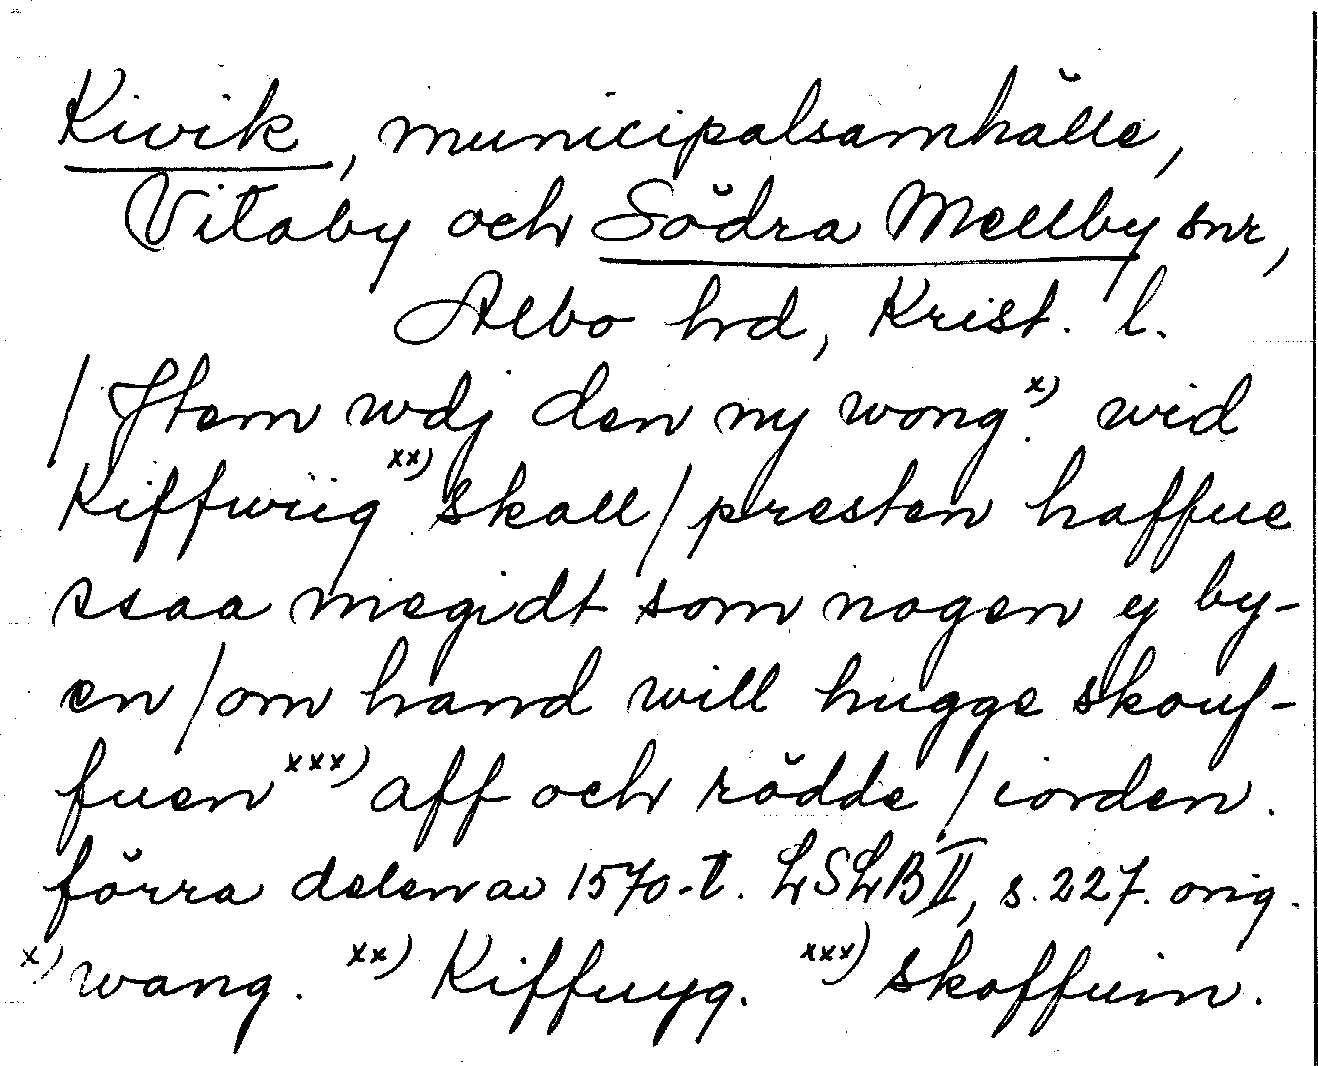 Kivik, municipalsamhälle,
Vitaby och Södra Mellby snr,
Albo hd, Krist. l.
/Jtem wdj den ny wong x). wid
Kiffwiig xx) skall/presten haffue
ssaa megidt som nogen ey by-
en/om hand will hugge skouf-
fuen xxx) aff och rödde/iorden.
förra delen av 1570-t. LSLB II, s. 227. orig.
x) wang. xx) Kiffuyg. xxx) skoffuin.